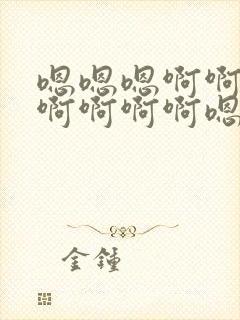 嗯嗯嗯啊啊
啊啊啊啊嗯
金鍾